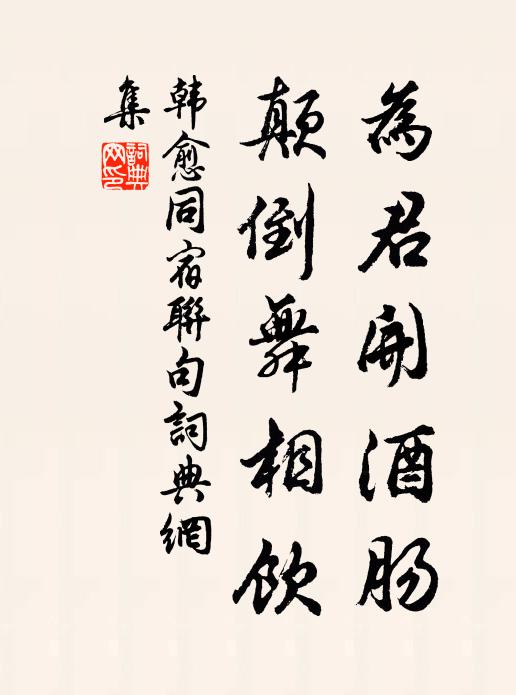 為君開酒肠
顛倒舞相飲
韩愈同宿聯句詞典網
集
詞典
网印